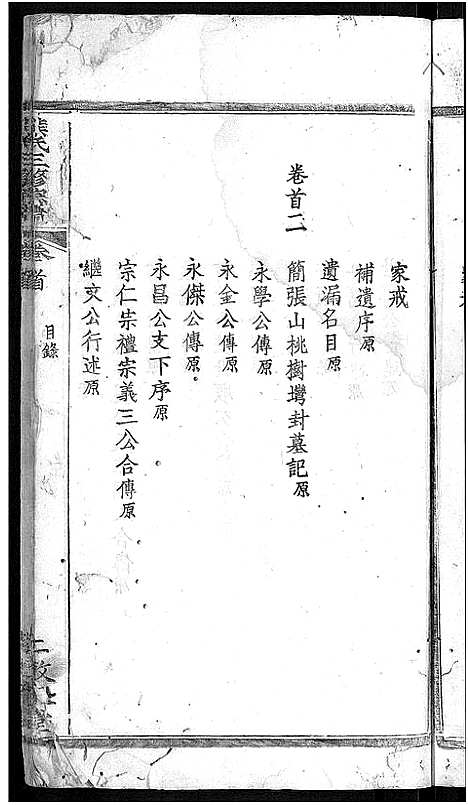 家戒
補遺序原
遺漏名目原
卷首二
簡張山桃樹灣封墓記原
永學公傳原
永金公傳原
永傑公傳原
永昌公支下序原
宗仁宗禮宗義三公合傳原
繼文公行述原
熊氏三修宗譜
卷首
目錄